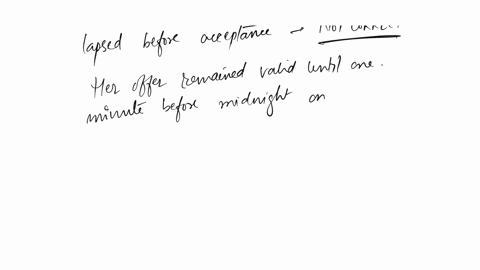 lapsed before acceptance → NOT CORRECT
Her offer remained valid until one.
minute before midnight on